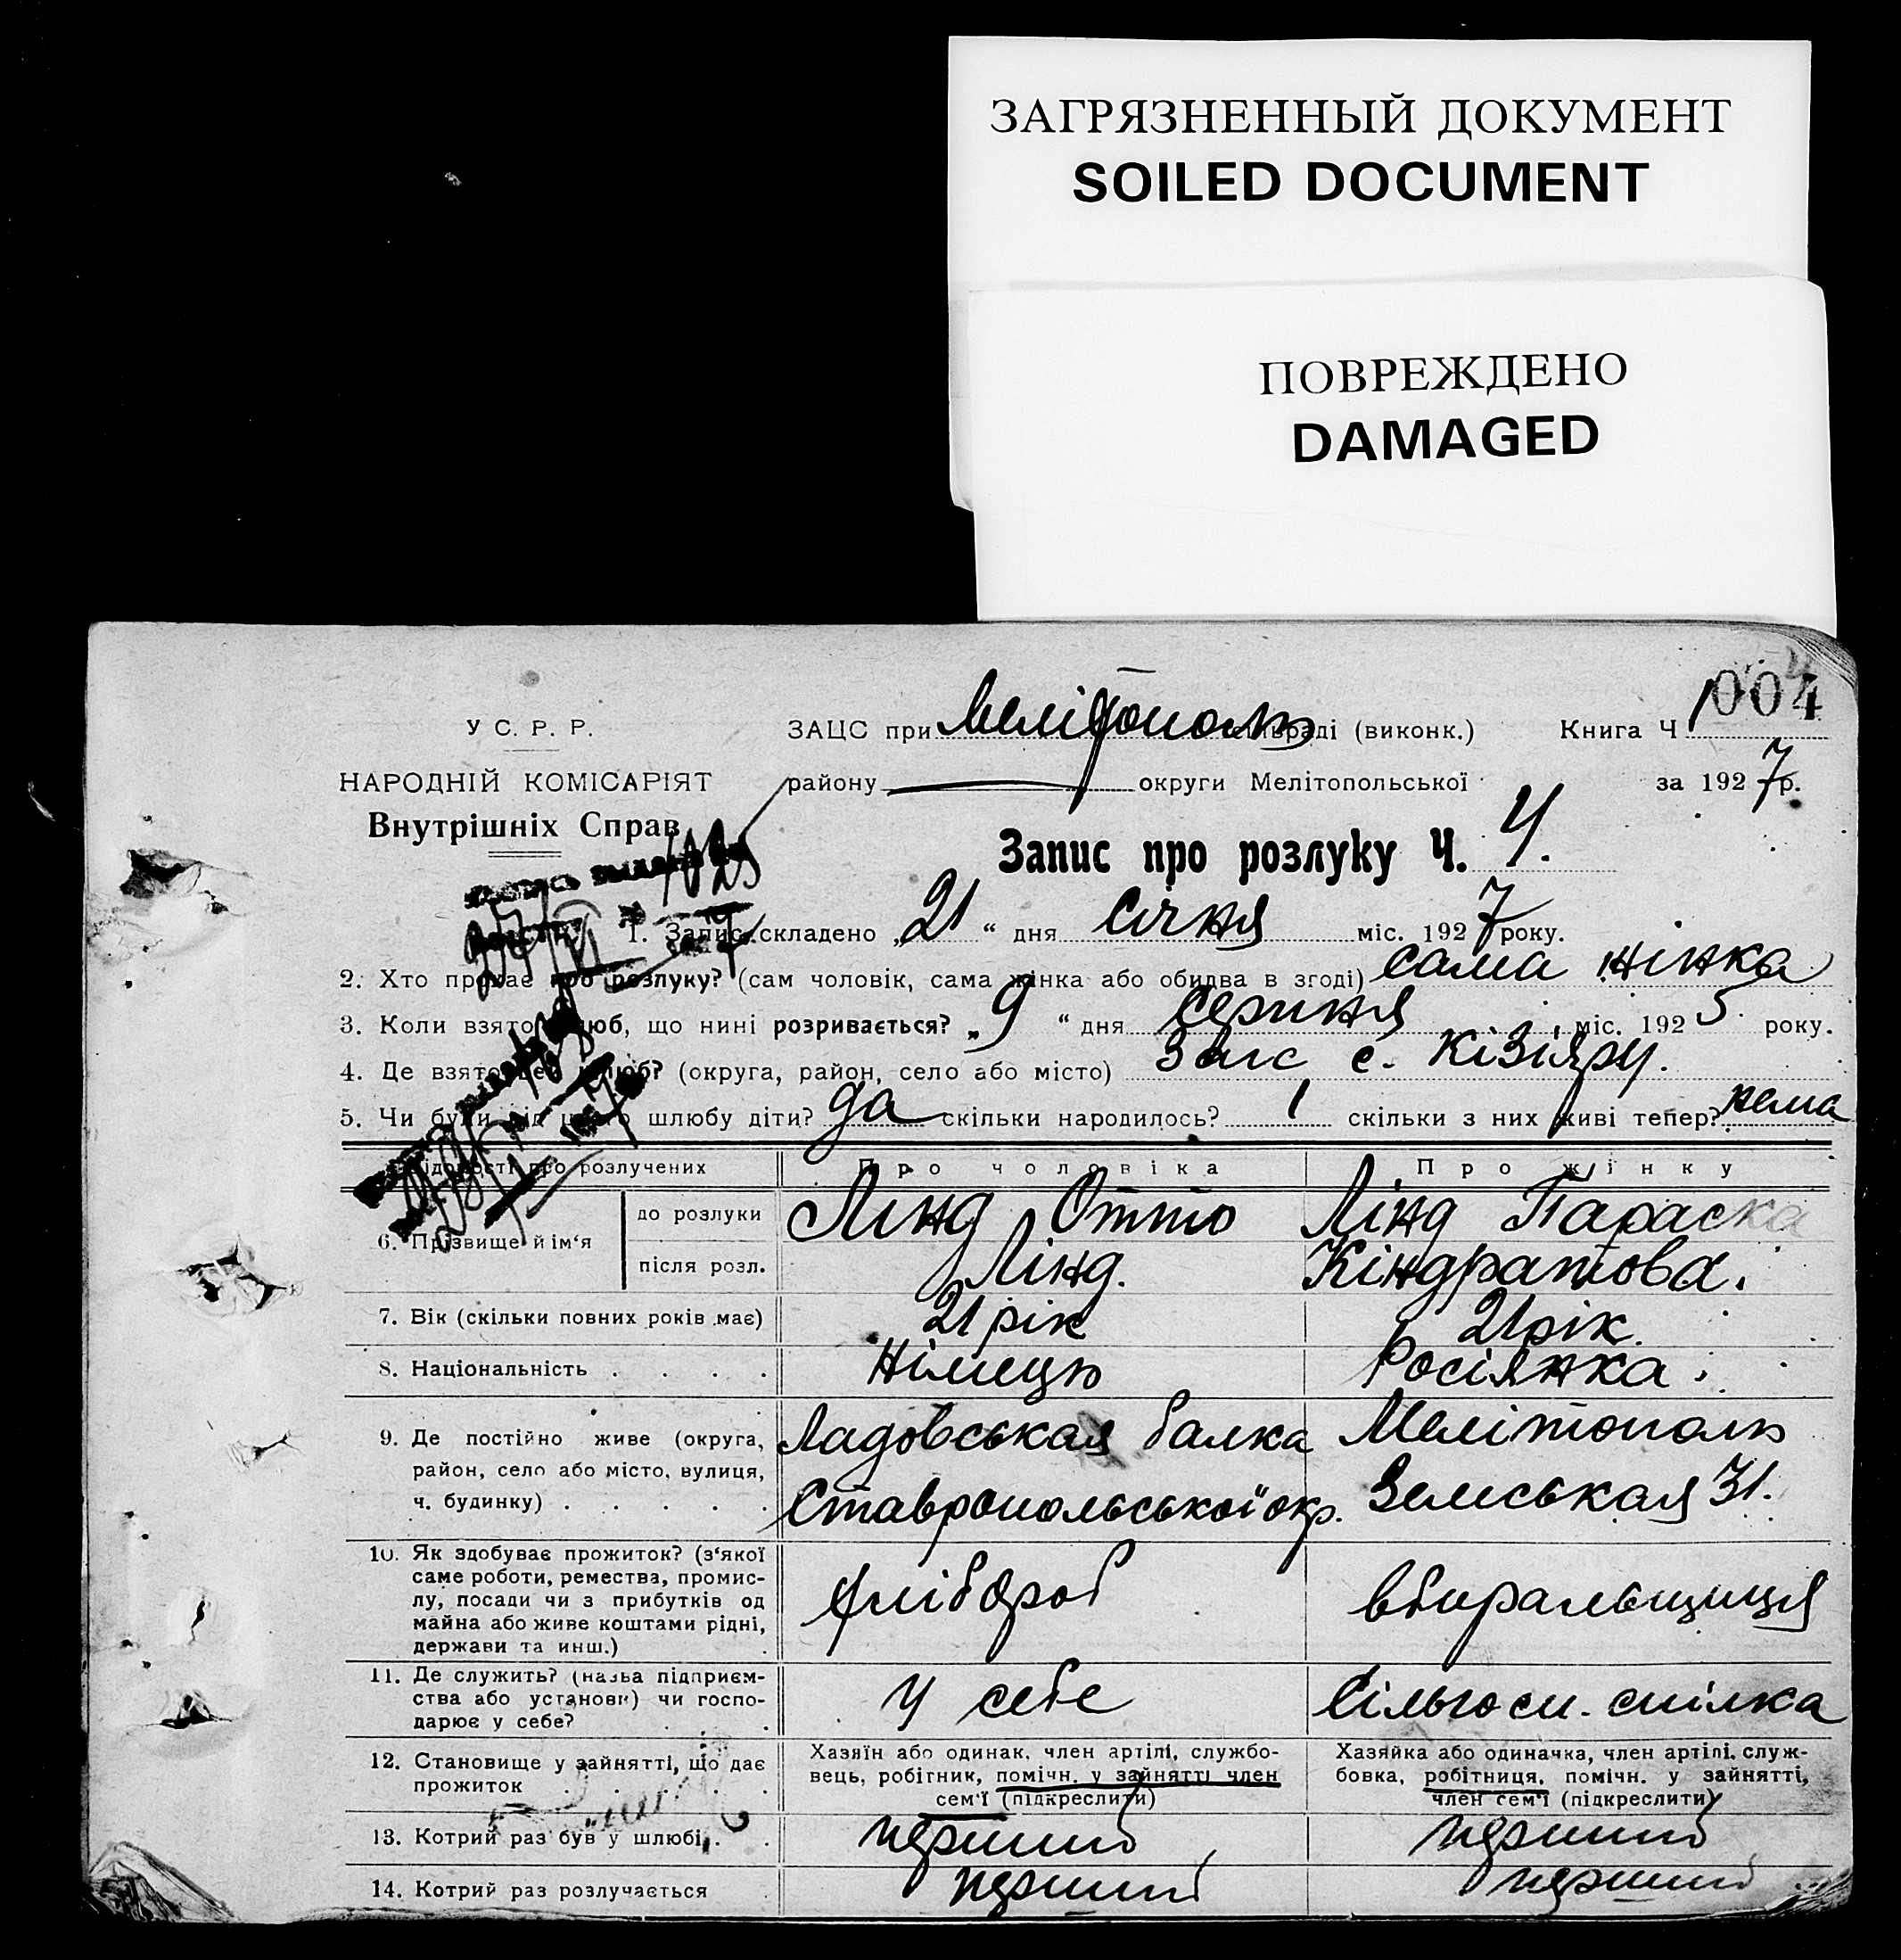 ЗАГРЯЗНЕННЫЙ ДОКУМЕНТ
SOILED DOCUMENT
ПОВРЕЖДЕНО
DAMAGED
004
У С. Р. Р.
ЗАЦС при Мелітополь сільраді (виконк.)
Книга Ч 1
НАРОДНІЙ КОМІСАРІЯТ
району округи Мелітопольської
за 1927 р.
Внутрішніх Справ
Запис про розлуку Ч. 4.
1. Запис складено „21“ дня Січня міс. 1927 року.
2. Хто прохає про розлуку? (сам чоловік, сама жінка або обидва в згоді) сама жінка
3. Коли взято шлюб, що нині розривається? „9“ дня Серпня міс. 1925 року.
4. Де взято цей шлюб? (округа, район, село або місто) Загс с. Кізіяру.
5. Чи були від цього шлюбу діти? да скільки народилось? 1 скільки з них живі тепер? нема
Відомості про розлучених
Про чоловіка
Про жінку
6. Прізвище й ім‘я
до розлуки
Лінд Отто
Лінд Параска
після розл.
Лінд.
Кіндратова.
7. Вік (скільки повних років має)
21 рік
21 рік.
8. Національність . . . .
Німець
Росіянка.
9. Де постійно живе (округа,
район, село або місто, вулиця,
ч. будинку) . . . . .
Ладовськая балка
Ставропольської окр.
Мелітополь
Земськая 31.
10. Як здобуває прожиток? (з‘якої
саме роботи, ремества, промис-
лу, посади чи з прибутків од
майна або живе коштами рідні,
держави та инш.)
хлібороб
вбиральщиця
11. Де служить? (назьа підприєм-
ства або установи) чи госпо-
дарює у себе?
У себе
Сільгосп. спілка
12. Становище у зайнятті, що дає
прожиток
Хазяїн або одинак, член артілі, службо-
вець, робітник, помічн. у зайнятті член
сем‘ї (підкреслити)
Хазяйка або одиначка, член артілі, служ-
бовка, робітниця, помічн. у зайнятті,
член сем‘ї (підкреслити)
13. Котрий раз був у шлюбі . .
перший
перший
14. Котрий раз розлучається
перший
перший